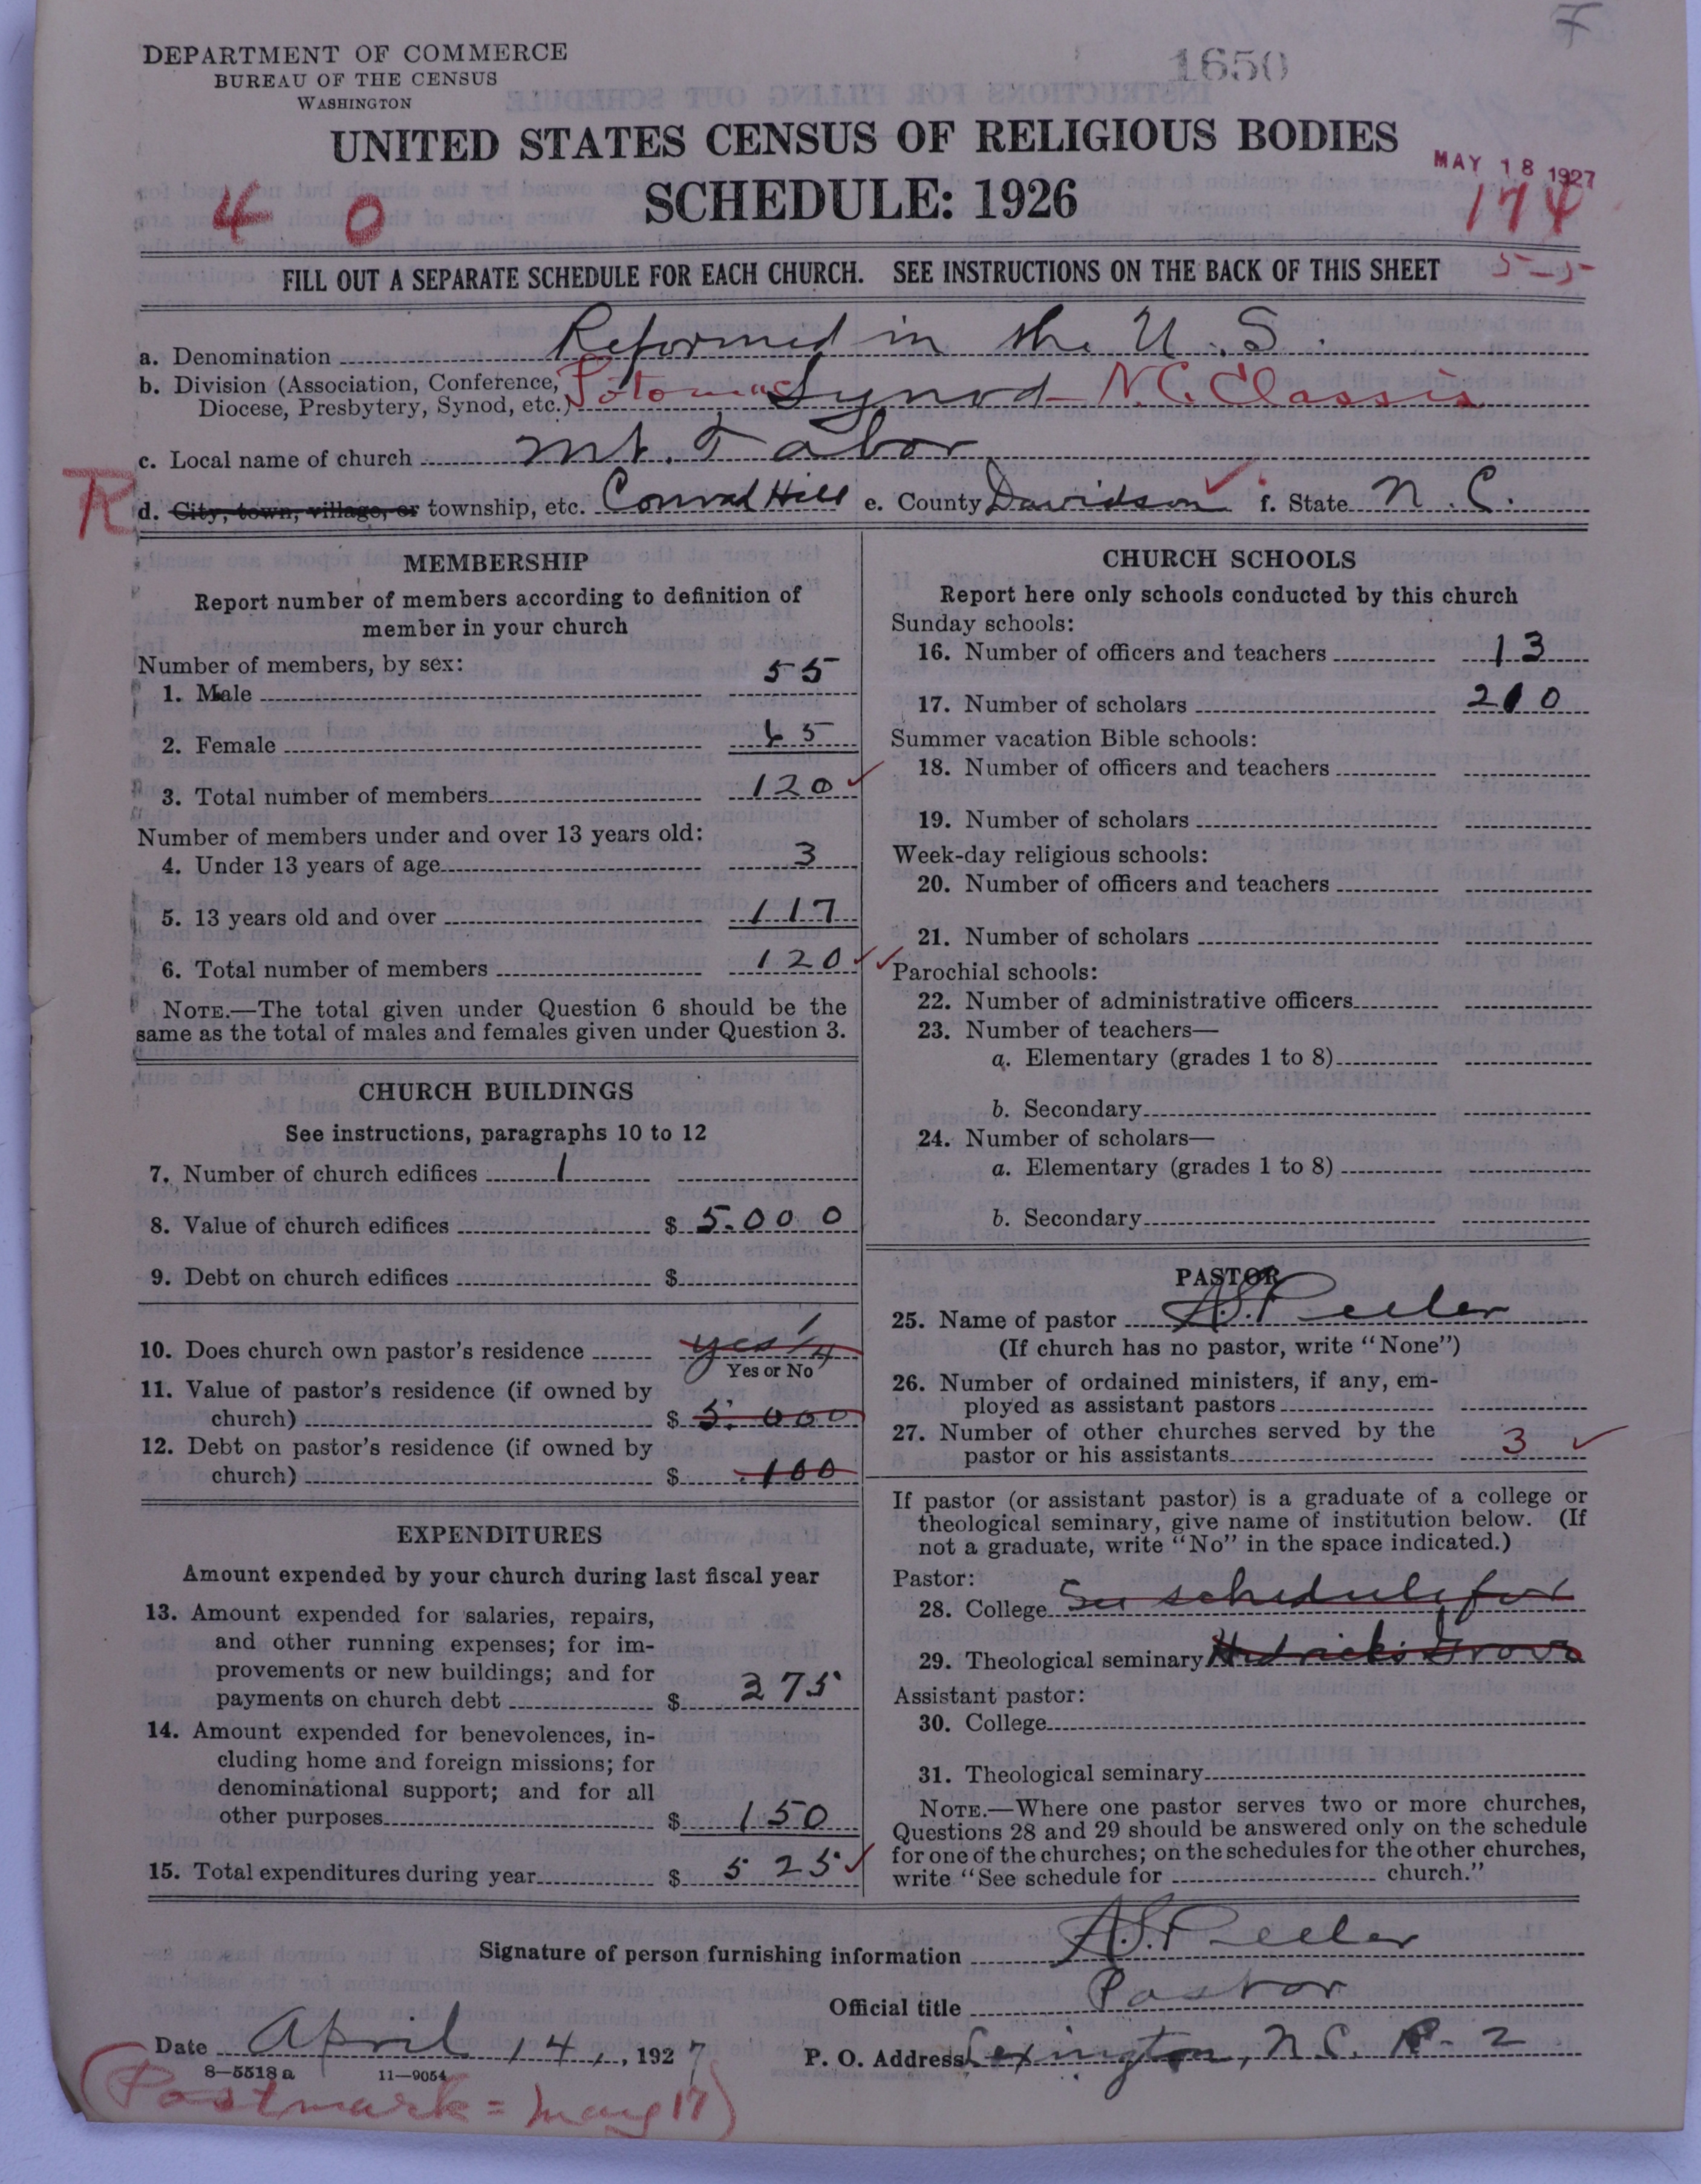 F
DEPARTMENT OF COMMERCE
BUREAU OF THE CENSUS
WASHINGTON
1650
UNITED STATES CENSUS OF RELIGIOUS BODIES
SCHEDULE: 1926
MAY 18 1927
4 0
174
5-5
FILL OUT A SEPARATE SCHEDULE FOR EACH CHURCH. SEE INSTRUCTIONS ON THE BACK OF THIS SHEET
a. Denomination Reformed in the U.S.
b. Division (Association, Conference, Diocese, Presbytery, Synod, etc.) Potomac Synod - N.C. Classis
c. Local name of church Mt. Tabor
R
d. City, town, village, or township, etc. Conrad Hill e. County Davidson f. State N.C.
MEMBERSHIP
Report number of members according to definition of
member in your church
Number of members, by sex:
1. Male 55
2. Female 65
3. Total number of members 120
Number of members under and over 13 years old:
4. Under 13 years of age 3
5. 13 years old and over 117
6. Total number of members 120
NOTE.—The total given under Question 6 should be the
same as the total of males and females given under Question 3.
CHURCH BUILDINGS
See instructions, paragraphs 10 to 12
7. Number of church edifices 1
8. Value of church edifices $ 5.000
9. Debt on church edifices $
10. Does church own pastor's residence yes 1/4
Yes or No
11. Value of pastor's residence (if owned by
church) $ 5.000
12. Debt on pastor's residence (if owned by
church) $ 100
EXPENDITURES
Amount expended by your church during last fiscal year
13. Amount expended for salaries, repairs,
and other running expenses; for im-
provements or new buildings; and for
payments on church debt $ 375
14. Amount expended for benevolences, in-
cluding home and foreign missions; for
denominational support; and for all
other purposes $ 150
15. Total expenditures during year $ 525
CHURCH SCHOOLS
Report here only schools conducted by this church
Sunday schools:
16. Number of officers and teachers 13
17. Number of scholars 210
Summer vacation Bible schools:
18. Number of officers and teachers
19. Number of scholars
Week-day religious schools:
20. Number of officers and teachers
21. Number of scholars
Parochial schools:
22. Number of administrative officers
23. Number of teachers—
a. Elementary (grades 1 to 8)
b. Secondary
24. Number of scholars—
a. Elementary (grades 1 to 8)
b. Secondary
PASTOR
25. Name of pastor A.S. Peeler
(If church has no pastor, write "None")
26. Number of ordained ministers, if any, em-
ployed as assistant pastors
27. Number of other churches served by the
pastor or his assistants 3
If pastor (or assistant pastor) is a graduate of a college or
theological seminary, give name of institution below. (If
not a graduate, write "No" in the space indicated.)
Pastor:
28. College See schedule for
29. Theological seminary Hedricks Grove
Assistant pastor:
30. College
31. Theological seminary
NOTE.—Where one pastor serves two or more churches,
Questions 28 and 29 should be answered only on the schedule
for one of the churches; on the schedules for the other churches,
write "See schedule for church."
Signature of person furnishing information A.S. Peeler
Official title Pastor
Date April 14, 1927
P. O. Address Lexington, N.C. R-2
8—5518 a 11—9054
(Postmark = May 17)